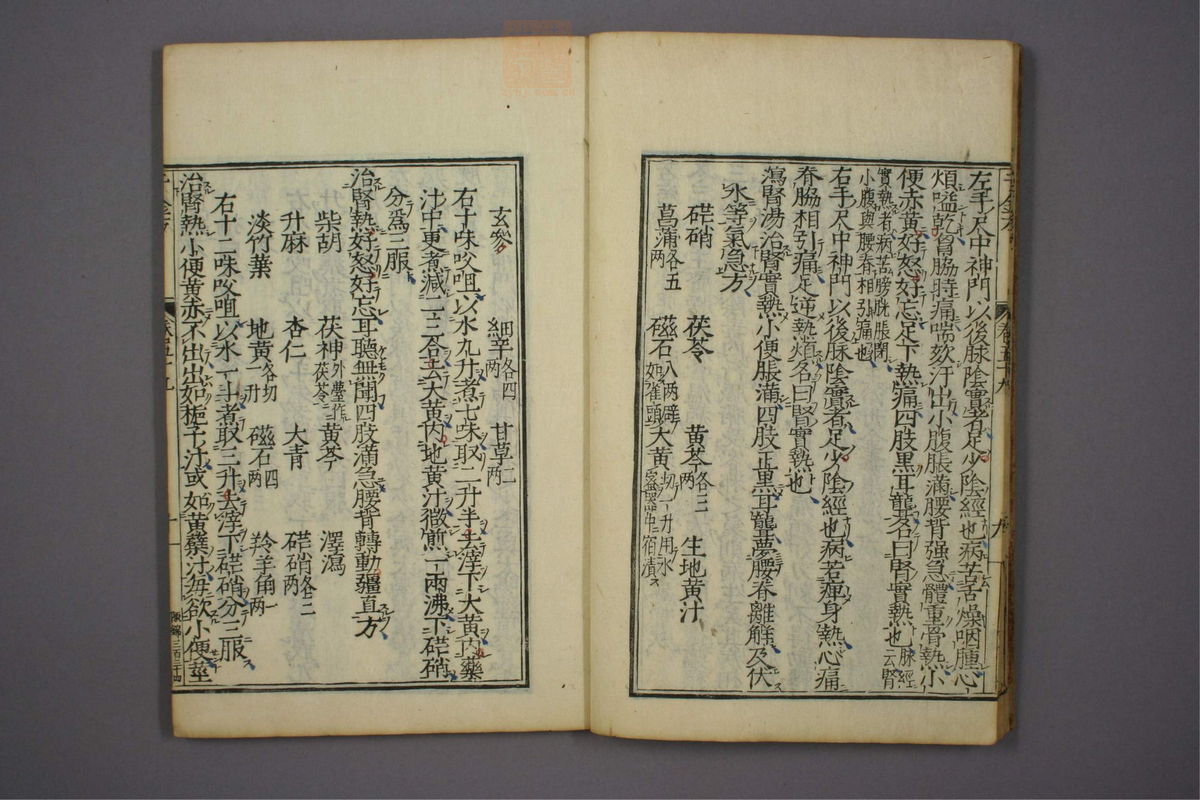 左手尺中神門以後脉陰實者足少陰經也病苦舌燥咽腫心
煩嗌乾胷脇時痛喘欬汗出小腹脹滿腰背强急體重骨熱小
便赤黃好怒好忘足下熱痛四肢黒耳聾名曰腎實熱也脉經云腎
實熱者病苦膀胱脹閉
小腹與腰脊相引痛也
右手尺中神門以後脉陰實者足少陰經也病苦痺身熱心痛
脊脇相引痛足逆熱煩名曰腎實熱也
瀉腎湯治腎實熱小便脹滿四肢正黒耳聾夢腰脊離解及伏
水等氣急方
硭硝 茯苓 黃芩各三兩 生地黃汁
菖蒲各五兩 磁石八兩碎如雀頭 大黃切一升用水密器中宿漬
玄參 細辛各四兩 甘草二兩
右十味㕮咀以水九升煮七味取二升半去滓下大黃內藥
汁中更煮減二三合去大黃內地黃汁微煎一兩沸下硭硝
分爲三服
治腎熱好怒好忘耳聽無聞四肢滿急腰背轉動彊直方
柴胡 茯神外臺作茯苓 黃芩 澤瀉
升麻 杏仁 大青 硭硝各二兩
淡竹葉 地黃各切一升 磁石四兩 羚羊角一兩
右十二味㕮咀以水一斗煮取三升去滓下硭硝分三服
治腎熱小便黃赤不出出如梔子汁或如黃蘗汁每欲小便莖